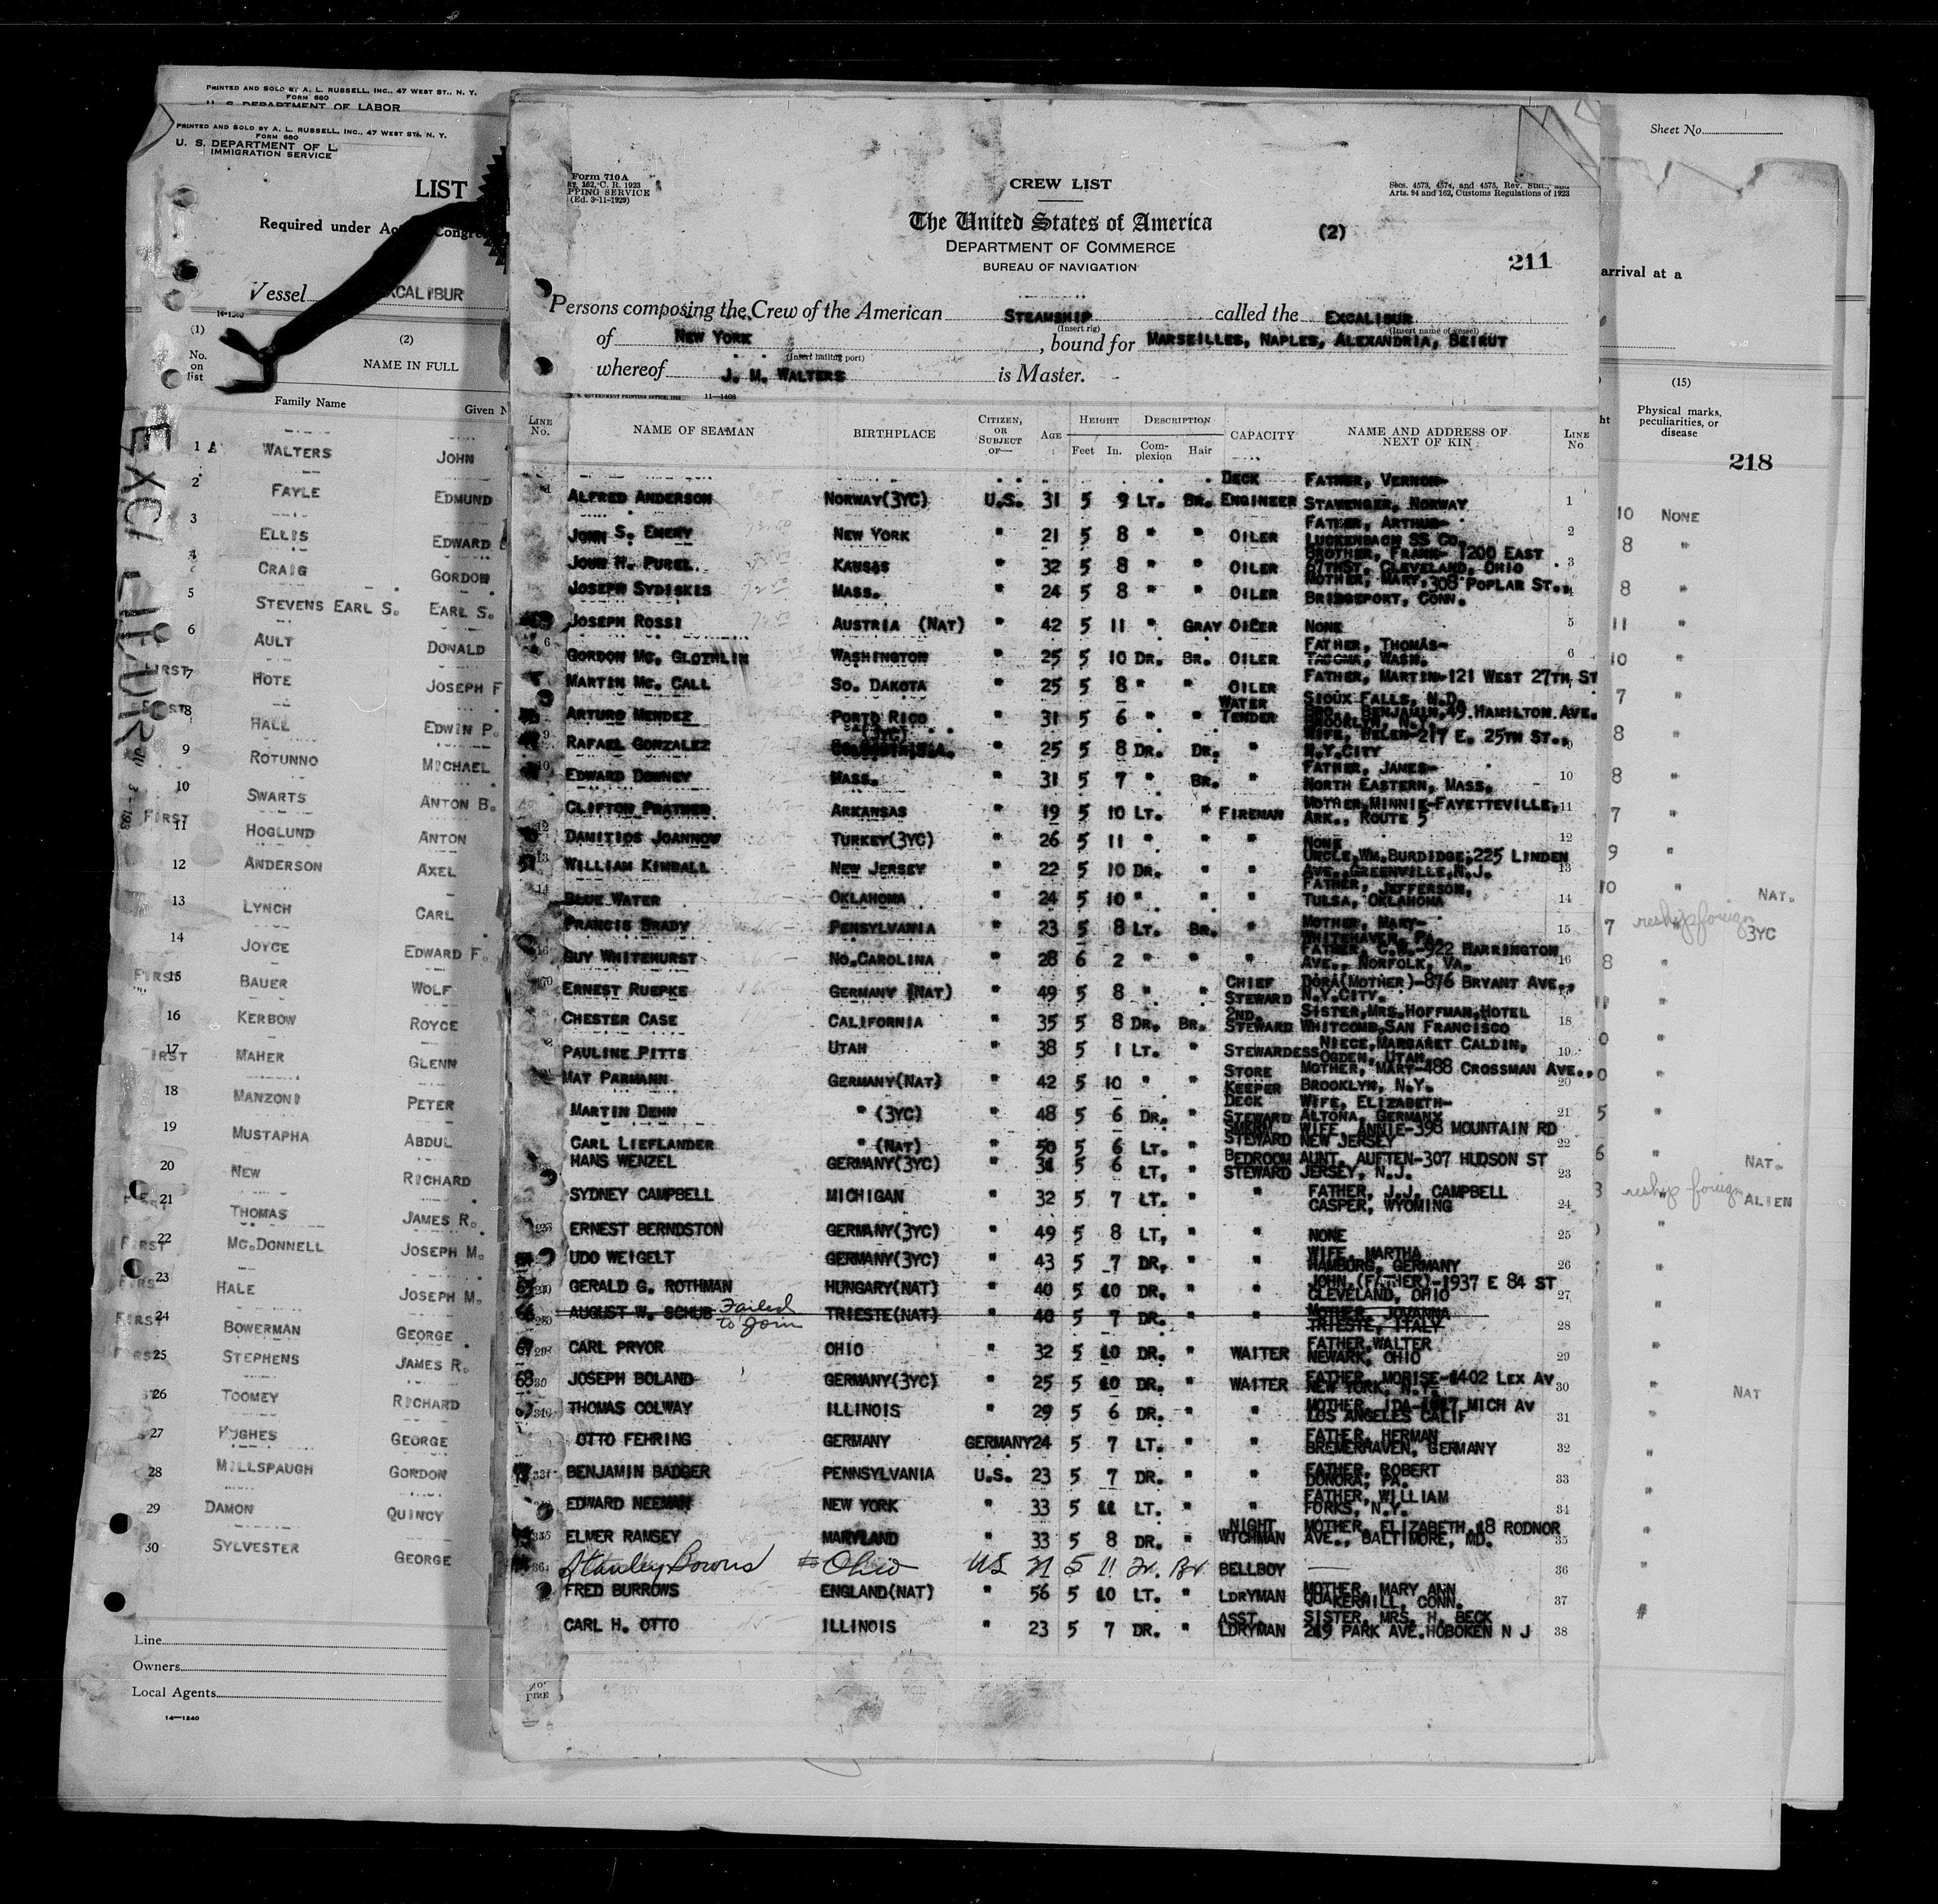 PRINTED AND SOLD BY A. L. RUSSELL, INC., 47 WEST ST., N. Y.
FORM 680
U. S. DEPARTMENT OF LABOR
PRINTED AND SOLD BY A. L. RUSSELL, INC., 47 WEST ST., N. Y.
FORM 680
U. S. DEPARTMENT OF L
IMMIGRATION SERVICE
LIST
Required under Act Congre
Vessel XCALIBUR
(1) (2)
No. on list NAME IN FULL
Family Name Given N
1 A WALTERS JOHN
2 FAYLE EDMUND
3 ELLIS EDWARD
4 CRAIG GORDON
5 STEVENS EARL S. EARL S.
6 AULT DONALD
FIRST 7 HOTE JOSEPH F
8 HALL EDWIN P.
9 ROTUNNO MICHAEL
10 SWARTS ANTON B.
FIRST 11 HOGLUND ANTON
12 ANDERSON AXEL
13 LYNCH CARL
14 JOYCE EDWARD F.
FIRST 15 BAUER WOLF
16 KERBOW ROYCE
17 MAHER GLENN
18 MANZONI PETER
19 MUSTAPHA ABDUL
20 NEW RICHARD
21 THOMAS JAMES R.
FIRST 22 MC.DONNELL JOSEPH M.
23 HALE JOSEPH M.
24 BOWERMAN GEORGE
25 STEPHENS JAMES R.
26 TOOMEY RICHARD
27 HUGHES GEORGE
28 MILLSPAUGH GORDON
29 DAMON QUINCY
30 SYLVESTER GEORGE
Line
Owners
Local Agents
14—1240
Form 710A
162, C. R. 1923
PPING SERVICE
(Ed. 3-11-1929)
CREW LIST
Secs. 4573, 4574, and 4575, Rev. Stat.,
Arts. 94 and 162, Customs Regulations of 1923
The United States of America
(2)
DEPARTMENT OF COMMERCE
BUREAU OF NAVIGATION
211
Persons composing the Crew of the American STEAMSHIP called the EXCALIBUR
(Insert rig) (Insert name of vessel)
of NEW YORK, bound for MARSEILLES, NAPLES, ALEXANDRIA, BEIRUT
(Insert hailing port)
whereof J. M. WALTERS is Master.
11—1408
LINE No. NAME OF SEAMAN BIRTHPLACE CITIZEN, OR SUBJECT OF— AGE HEIGHT Feet In. DESCRIPTION Complexion Hair CAPACITY NAME AND ADDRESS OF NEXT OF KIN LINE No
ALFRED ANDERSON NORWAY(3YC) U.S. 31 5 9 LT. BR. DECK ENGINEER FATHER, VERNON- STAVENGER, NORWAY 1
JOHN S. EMERY NEW YORK " 21 5 8 " " OILER FATHER, ARTHUR- LUCKENBACH SS CO. 2
JOHN H. PUREL. KANSAS " 32 5 8 " " OILER BROTHER, FRANK- 1200 EAST 67THST, CLEVELAND, OHIO 3
JOSEPH SYDISKES MASS. " 24 5 8 " " OILER MOTHER, MARY,308 POPLAR ST., BRIDGEPORT, CONN. 4
JOSEPH ROSSI AUSTRIA (NAT) " 42 5 11 " GRAY OILER NONE 5
GORDON MC. GLOTHLIN WASHINGTON " 25 5 10 DR. BR. OILER FATHER, THOMAS- TACOMA, WASH. 6
MARTIN MC. CALL SO. DAKOTA " 25 5 8 " " OILER FATHER, MARTIN-121 WEST 27TH ST SIOUX FALLS, N.D.
ARTURO MENDEZ PORTO RICO " 31 5 6 " " WATER TENDER BRO. BENJAMIN,49 HAMILTON AVE. BROOKLYN, N.Y.
RAFAEL GONZALEZ (3YC) " 25 5 8 DR. DR. " WIFE, HELEN-217 E. 25TH ST., N.Y.CITY 9
EDWARD DOWNEY MASS. " 31 5 7 " BR. " FATHER, JAMES- NORTH EASTERN, MASS. 10
CLIFTON PRATHER ARKANSAS " 19 5 10 LT. " FIREMAN MOTHER,MINNIE-FAYETTEVILLE, ARK., ROUTE 5 11
DAMITIOS JOANNOU TURKEY(3YC) " 26 5 11 " " " NONE 12
WILLIAM KIMBALL NEW JERSEY " 22 5 10 DR. " " UNCLE,WM.BURDIDGE,225 LINDEN AVE.,GREENVILLE,N.J. 13
BLUE WATER OKLAHOMA " 24 5 10 " " " FATHER, JEFFERSON, TULSA, OKLAHOMA 14
FRANCIS BRADY PENSYLVANIA " 23 5 8 LT. BR. " MOTHER, MARY- WHITEHAVEN, PA. 15
GUY WHITEHURST NO.CAROLINA " 28 6 2 " " " FATHER, C.W.-922 HARRINGTON AVE., NORFOLK, VA. 16
ERNEST RUEPKE GERMANY (NAT) " 49 5 8 " " CHIEF STEWARD DORA(MOTHER)-876 BRYANT AVE., N.Y.CITY.
CHESTER CASE CALIFORNIA " 35 5 8 DR. BR. 2ND. STEWARD SISTER,MRS.HOFFMAN,HOTEL WHITCOMB,SAN FRANCISCO 18
PAULINE PITTS UTAH " 38 5 1 LT. " STEWARDESS NIECE,MARGARET CALDIN, OGDEN, UTAH. 19
MAT PARMANN GERMANY(NAT) " 42 5 10 " " STORE KEEPER MOTHER, MARY-488 CROSSMAN AVE., BROOKLYN, N.Y. 20
MARTIN DEHN " (3YC) " 48 5 6 DR. " DECK STEWARD WIFE, ELIZABETH- ALTONA, GERMANY 21
CARL LIEFLANDER " (NAT) " 50 5 6 LT. " STEWARD WIFE, ANNIE-398 MOUNTAIN RD NEW JERSEY 22
HANS WENZEL GERMANY(3YC) " 31 5 6 LT. " BEDROOM STEWARD AUNT, AUFTEN-307 HUDSON ST JERSEY, N.J. 23
SYDNEY CAMPBELL MICHIGAN " 32 5 7 LT. " " FATHER, J.J. CAMPBELL CASPER, WYOMING 24
ERNEST BERNDSTON GERMANY(3YC) " 49 5 8 LT, " " NONE 25
UDO WEIGELT GERMANY(3YC) " 43 5 7 DR, " " WIFE, MARTHA HAMBORG, GERMANY 26
GERALD G. ROTHMAN HUNGARY(NAT) " 40 5 10 DR. " " JOHN,(FATHER)-1937 E 84 ST CLEVELAND, OHIO 27
AUGUST W. SCHUB Failed to Join TRIESTE(NAT) " 40 5 7 DR. " " MOTHER, JOVANNA TRIESTE, ITALY 28
67 CARL PRYOR OHIO " 32 5 10 DR. " WAITER FATHER,WALTER NEWARK, OHIO 29
68 JOSEPH BOLAND GERMANY(3YC) " 25 5 10 DR. " WAITER FATHER, MORISE-1402 LEX AV NEW YORK, N.Y. 30
THOMAS COLWAY ILLINOIS " 29 5 6 DR. " " MOTHER, IDA- MICH AV LOS ANGELES CALIF 31
OTTO FEHRING GERMANY GERMANY 24 5 7 LT. " " FATHER, HERMAN BREMERHAVEN, GERMANY 32
BENJAMIN BADGER PENNSYLVANIA U.S. 23 5 7 DR. " " FATHER, ROBERT DONORA, PA. 33
EDWARD NEEMAN NEW YORK " 33 5 11 LT. " " FATHER, WILLIAM FORKS, N.Y. 34
ELMER RAMSEY MARYLAND " 33 5 8 DR. " NIGHT WTCHMAN MOTHER, ELIZABETH,18 RODNOR AVE., BALTIMORE, MD. 35
Stanley Bowns Ohio US 21 5 11 Dr. Br. BELLBOY — 36
FRED BURROWS ENGLAND(NAT) " 56 5 10 LT. " LDRYMAN MOTHER, MARY ANN QUAKERHILL, CONN. 37
CARL H. OTTO ILLINOIS " 23 5 7 DR. " ASST. LDRYMAN SISTER, MRS. H. BECK 219 PARK AVE.HOBOKEN N J 38
Sheet No.
arrival at a
(15)
Physical marks, peculiarities, or disease
218
10 NONE
8 "
8 "
11 "
10 "
7 "
8 "
8 "
7 "
9 "
10 " NAT.
7 reship foreign 3YC
8 "
NAT.
reship foreign ALIEN
NAT